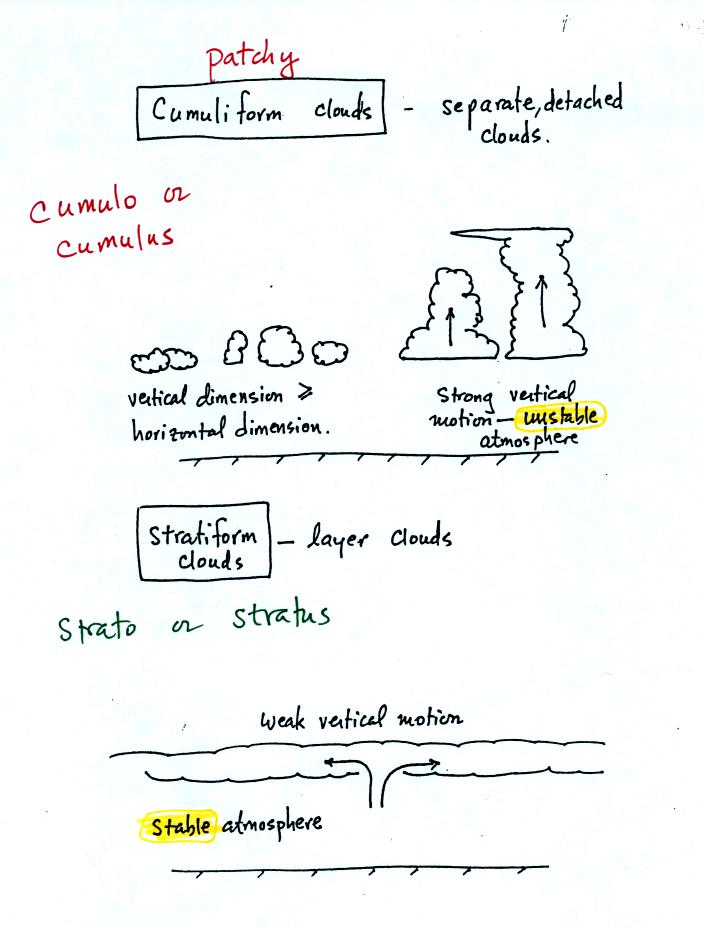 patchy
Cumuliform clouds - separate, detached
clouds.
cumulo or
cumulus
vertical dimension ≥
horizontal dimension.
Strong vertical
motion - unstable
atmosphere
Stratiform
clouds - layer clouds
Strato or stratus
weak vertical motion
Stable atmosphere